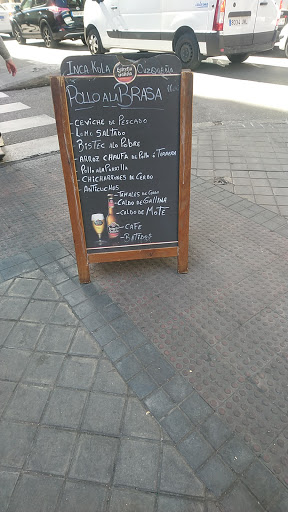 INCA KOLA CUZQUEÑA
Estrella
GALICIA
POLLO A LA BRASA
- CEVICHE DE PESCADO
- LOMO SALTADO
- BISTEC A LO POBRE
- ARROZ CHAUFA DE POLLO o TERNERA
- POLLO A LA PARRILLA
- CHICHARRONES DE CERDO
- ANTICUCHOS
- TAMALES DE CERDO
- CALDO DE GALLINA
- CALDO DE MOTE
- CAFE
- BATIDOS